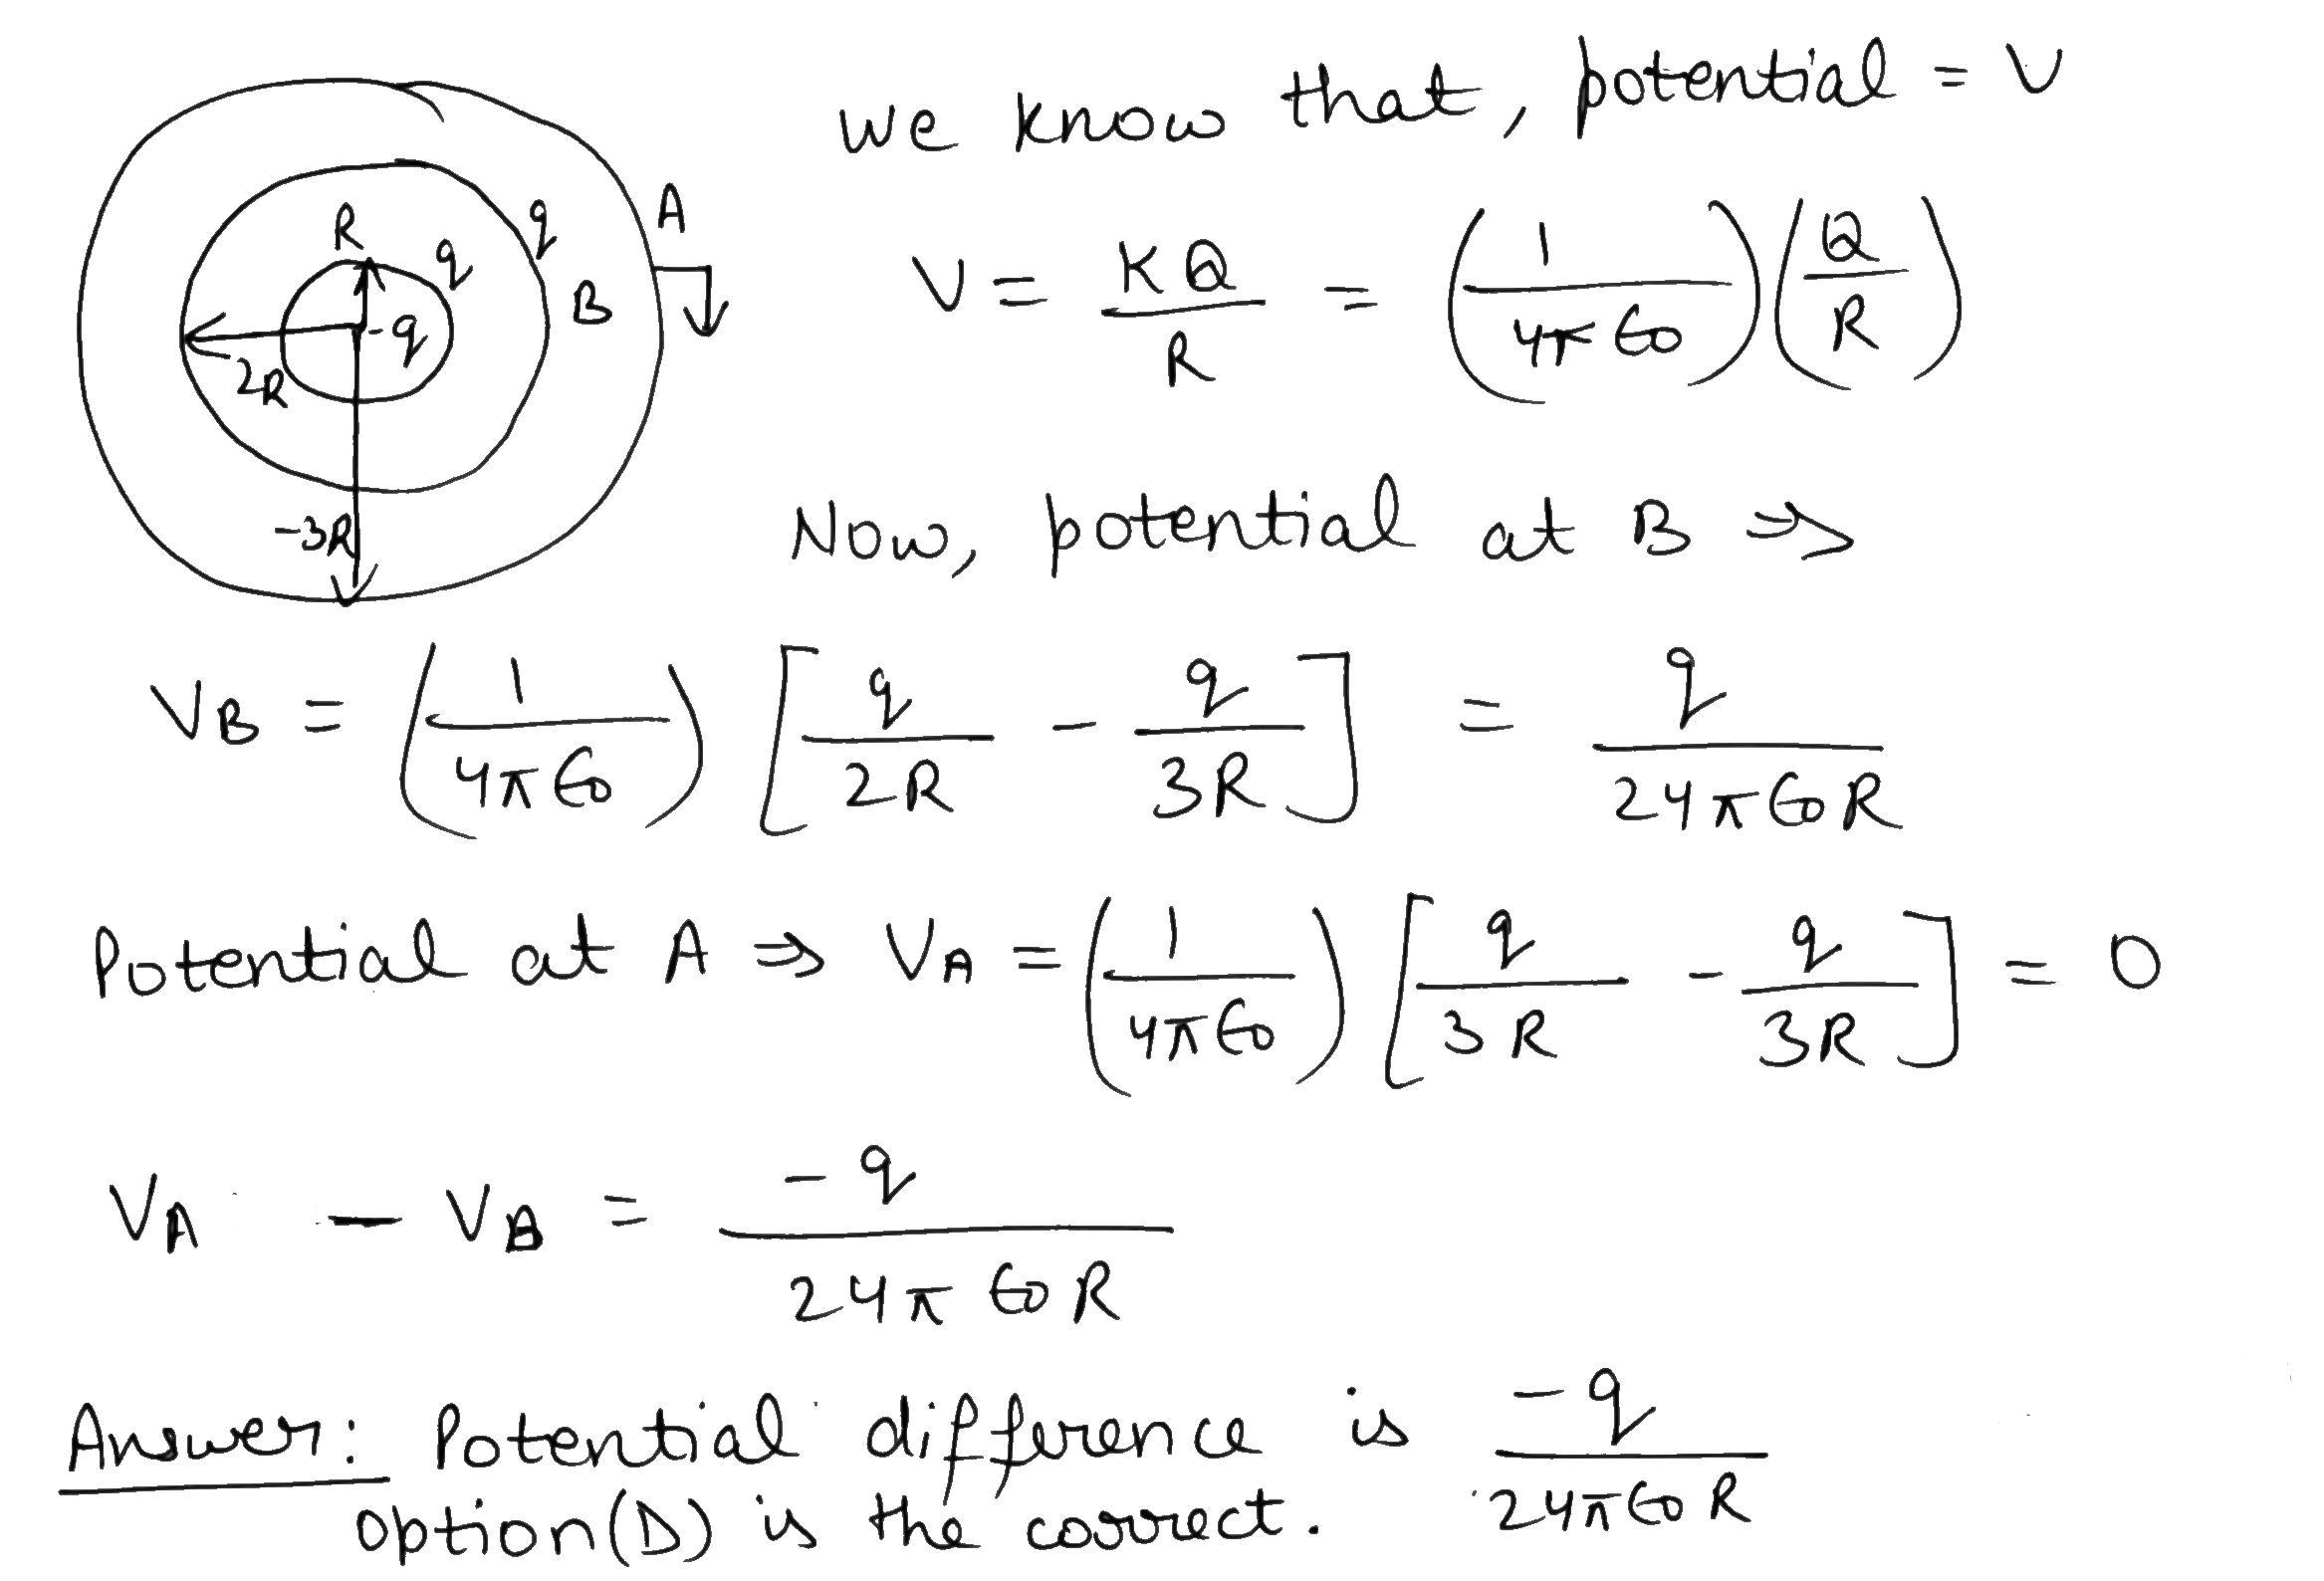 we know that, potential = V
R q q A
B
-q
2R
-3R
V = KQ/R = (1/4π∈0)(Q/R)
Now, potential at B ⇒
VB = (1/4π∈0) [q/2R - q/3R] = q/24π∈0R
Potential at A ⇒ VA = (1/4π∈0) [q/3R - q/3R] = 0
VA - VB = -q/24π∈0R
Answer: Potential difference is -q/24π∈0R
option (D) is the correct.